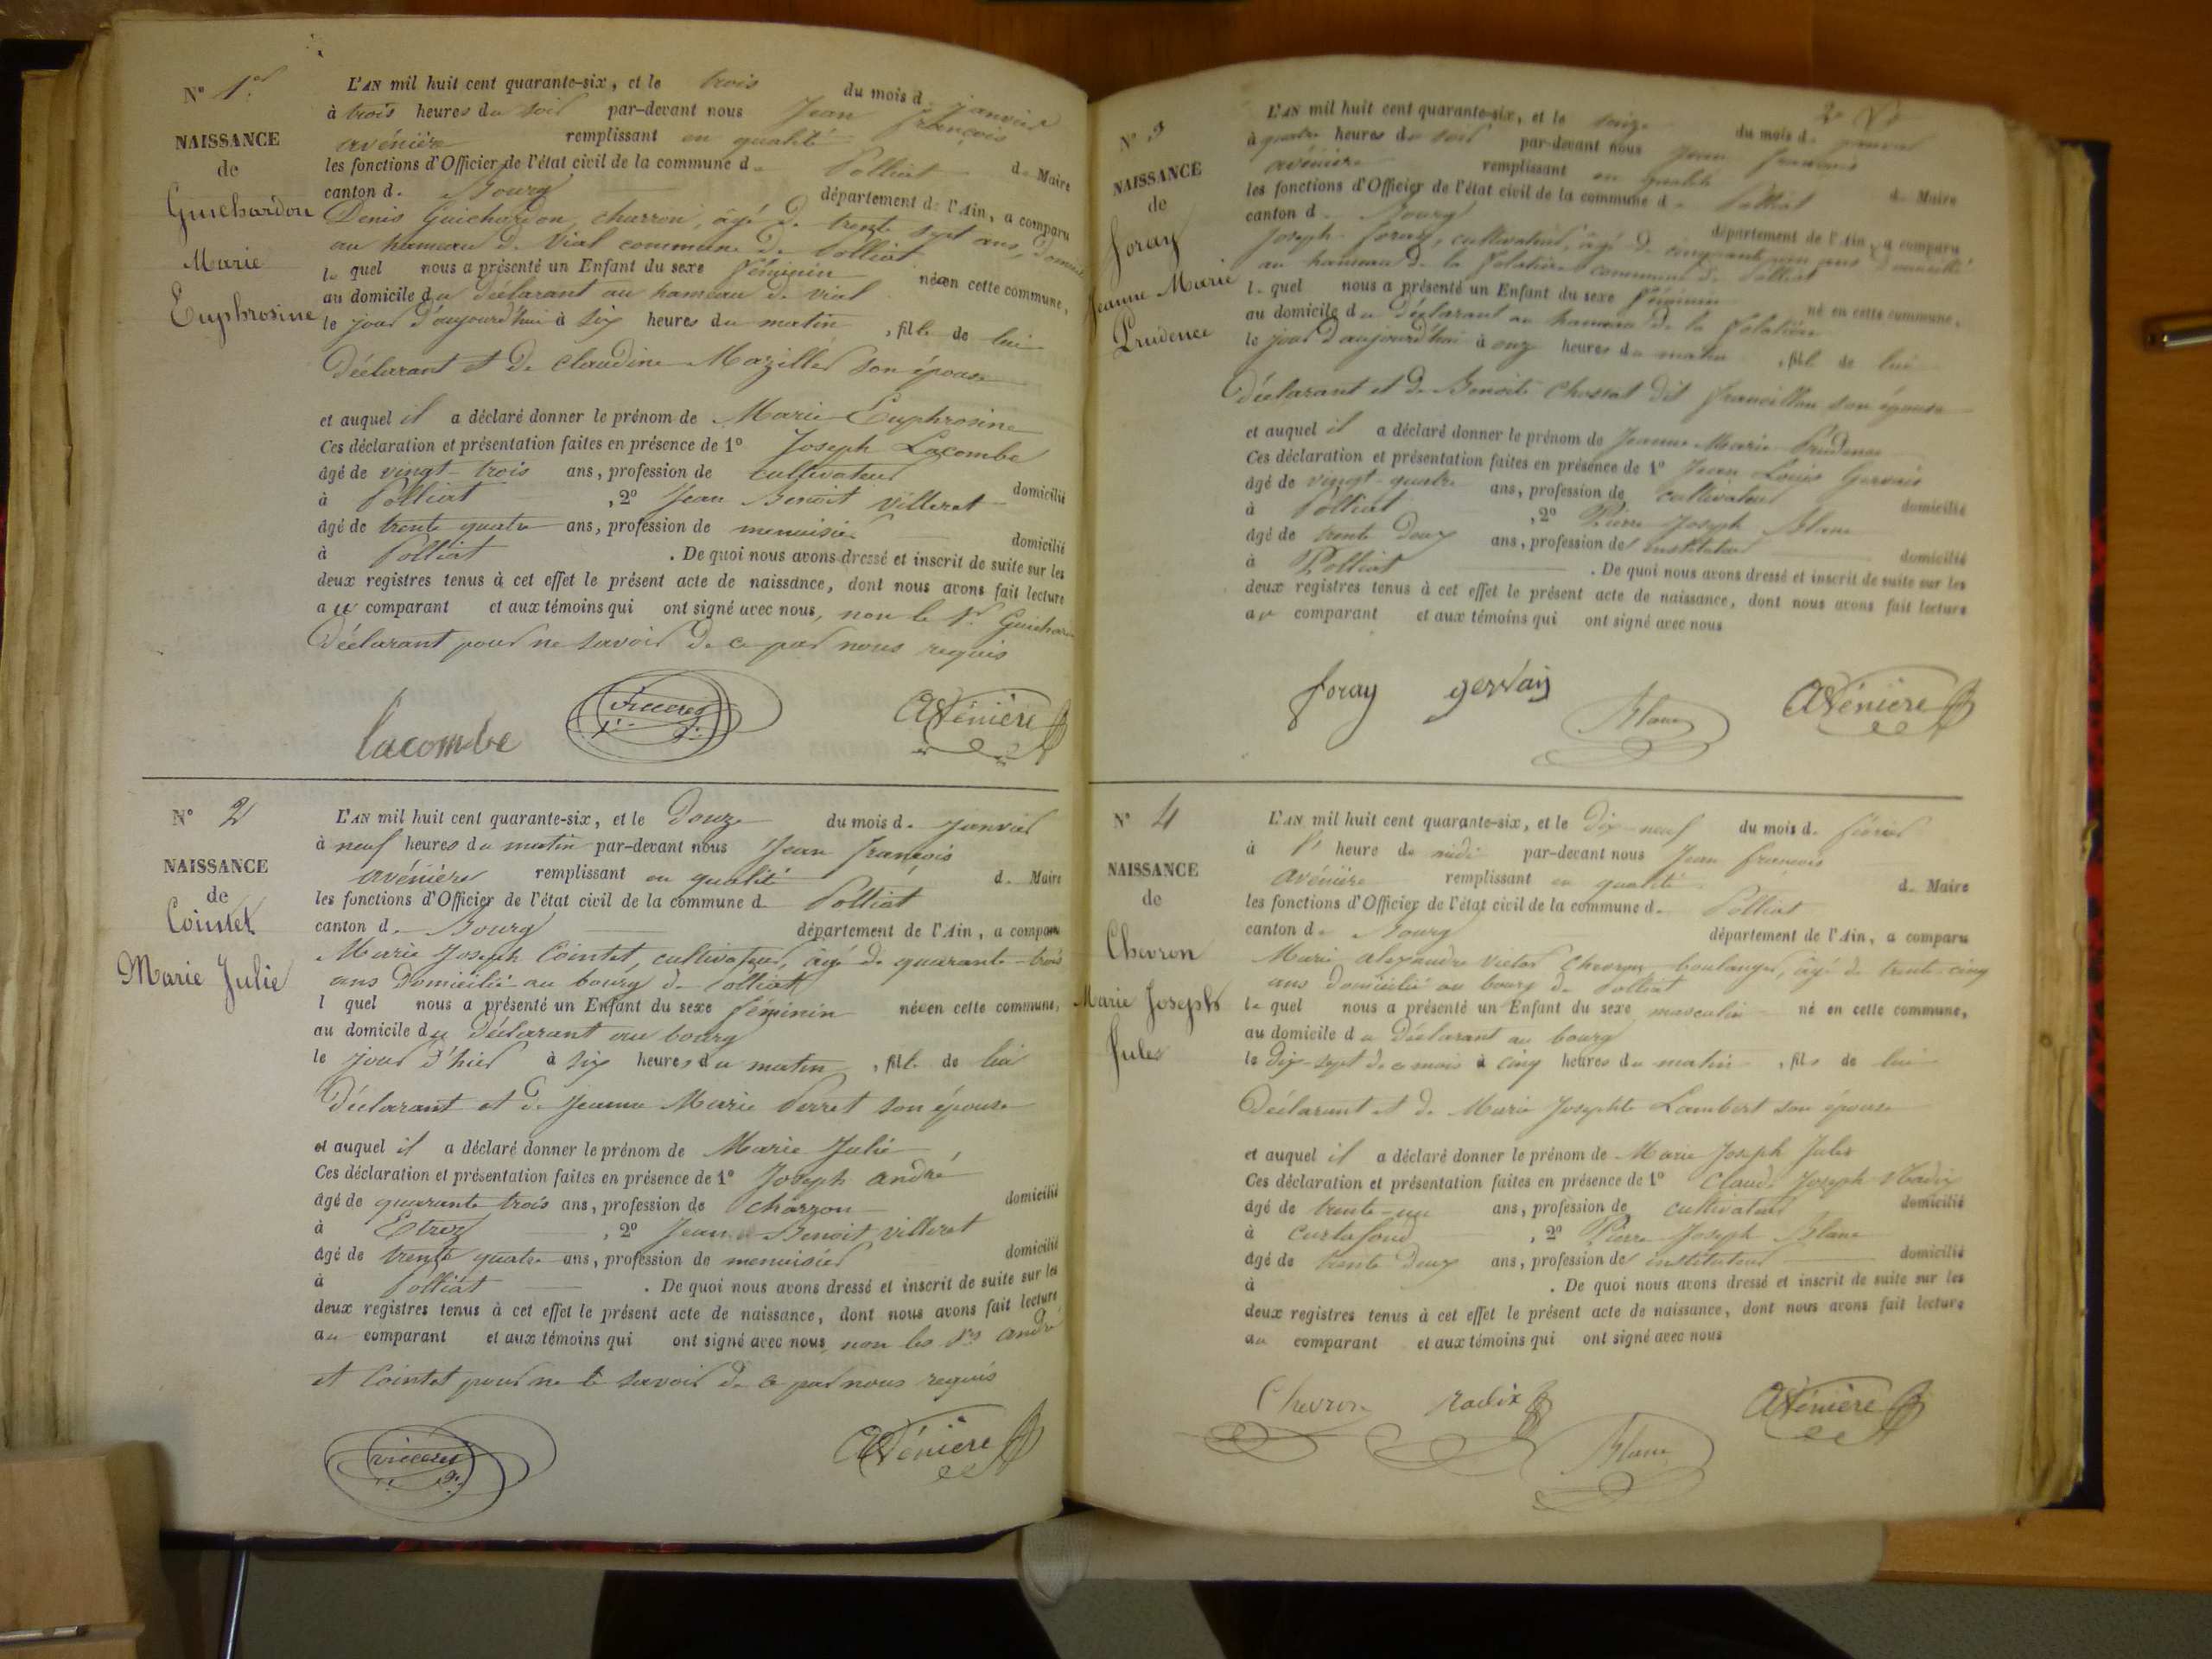 N° 1er
NAISSANCE
de
Guichardon
Marie
Euphrosine
L'AN mil huit cent quarante-six, et le trois du mois de janvier
à trois heures du soir par-devant nous Jean françois
avénière remplissant en qualité de Maire
les fonctions d'Officier de l'état civil de la commune de Polliat
canton de Bourg département de l'Ain, a comparu
Denis Guichardon, charron, âgé de trente sept ans, domicilié
au hameau de Vial commune de Polliat
le quel nous a présenté un Enfant du sexe féminin née en cette commune,
au domicile du déclarant au hameau de vial
le jour d'aujourd'hui à six heures du matin, fille de lui
déclarant et de claudine Mazillé son épouse
et auquel il a déclaré donner le prénom de Marie Euphrosine
Ces déclaration et présentation faites en présence de 1° Joseph Lacombe
âgé de vingt-trois ans, profession de cultivateur domicilié
à Polliat, 2° Jean Benoit Villeret
âgé de trente quatre ans, profession de menuisier domicilié
à Polliat. De quoi nous avons dressé et inscrit de suite sur les
deux registres tenus à cet effet le présent acte de naissance, dont nous avons fait lecture
au comparant et aux témoins qui ont signé avec nous, non le Sr Guichardon
déclarant pour ne savoir de ce par nous requis
lacombe villeret Avénière
N° 2
NAISSANCE
de
Cointet
Marie Julie
L'AN mil huit cent quarante-six, et le douze du mois de janvier
à neuf heures du matin par-devant nous Jean françois
avénière remplissant en qualité de Maire
les fonctions d'Officier de l'état civil de la commune de Polliat
canton de Bourg département de l'Ain, a comparu
Marie Joseph Cointet, cultivateur, âgé de quarante-trois
ans domicilié au bourg de Polliat
l quel nous a présenté un Enfant du sexe féminin née en cette commune,
au domicile du déclarant au bourg
le jour d'hier à six heures du matin, fille de lui
déclarant et de Jeanne Marie Perret son épouse
et auquel il a déclaré donner le prénom de Marie Julie
Ces déclaration et présentation faites en présence de 1° Joseph andré
âgé de quarante trois ans, profession de charron domicilié
à Etrez, 2° Jean Benoit villeret
âgé de trente quatre ans, profession de menuisier domicilié
à Polliat. De quoi nous avons dressé et inscrit de suite sur les
deux registres tenus à cet effet le présent acte de naissance, dont nous avons fait lecture
au comparant et aux témoins qui ont signé avec nous, non les Srs andré
et Cointet pour ne le savoir de ce par nous requis
villeret Avénière
N° 3
NAISSANCE
de
Foray
Jeanne Marie
Prudence
L'AN mil huit cent quarante-six, et le seize du mois de janvier
à quatre heures du soir par-devant nous Jean françois
avénière remplissant en qualité de Maire
les fonctions d'Officier de l'état civil de la commune de Polliat
canton de Bourg département de l'Ain, a comparu
Joseph foray, cultivateur, âgé de cinquante ans domicilié
au hameau de la commune de Polliat
le quel nous a présenté un Enfant du sexe féminin né en cette commune,
au domicile du déclarant au hameau de la
le jour d'aujourd'hui à onze heures du matin, fille de lui
déclarant et de Benoite Chossat dit francillon son épouse
et auquel il a déclaré donner le prénom de Jeanne Marie Prudence
Ces déclaration et présentation faites en présence de 1° Jean Louis Gervais
âgé de vingt-quatre ans, profession de cultivateur domicilié
à Polliat, 2° Pierre Joseph Blanc
âgé de trente deux ans, profession de instituteur domicilié
à Polliat. De quoi nous avons dressé et inscrit de suite sur les
deux registres tenus à cet effet le présent acte de naissance, dont nous avons fait lecture
au comparant et aux témoins qui ont signé avec nous
foray gervais Blanc Avénière
N° 4
NAISSANCE
de
Chevron
Marie Joseph
Jules
L'AN mil huit cent quarante-six, et le dix-neuf du mois de février
à heure de midi par-devant nous Jean françois
avénière remplissant en qualité de Maire
les fonctions d'Officier de l'état civil de la commune de Polliat
canton de Bourg département de l'Ain, a comparu
Marie alexandre victor Chevron boulanger, âgé de trente-cinq
ans domicilié au bourg de Polliat
le quel nous a présenté un Enfant du sexe masculin né en cette commune,
au domicile du déclarant au bourg
le dix-sept de ce mois à cinq heures du matin, fils de lui
déclarant et de Marie Josephte Lambert son épouse
et auquel il a déclaré donner le prénom de Marie Joseph Jules
Ces déclaration et présentation faites en présence de 1° Claude Joseph Radix
âgé de trente-un ans, profession de cultivateur domicilié
à curtafond, 2° Pierre Joseph Blanc
âgé de trente deux ans, profession de instituteur domicilié
à . De quoi nous avons dressé et inscrit de suite sur les
deux registres tenus à cet effet le présent acte de naissance, dont nous avons fait lecture
au comparant et aux témoins qui ont signé avec nous
Chevron Radix Blanc Avénière